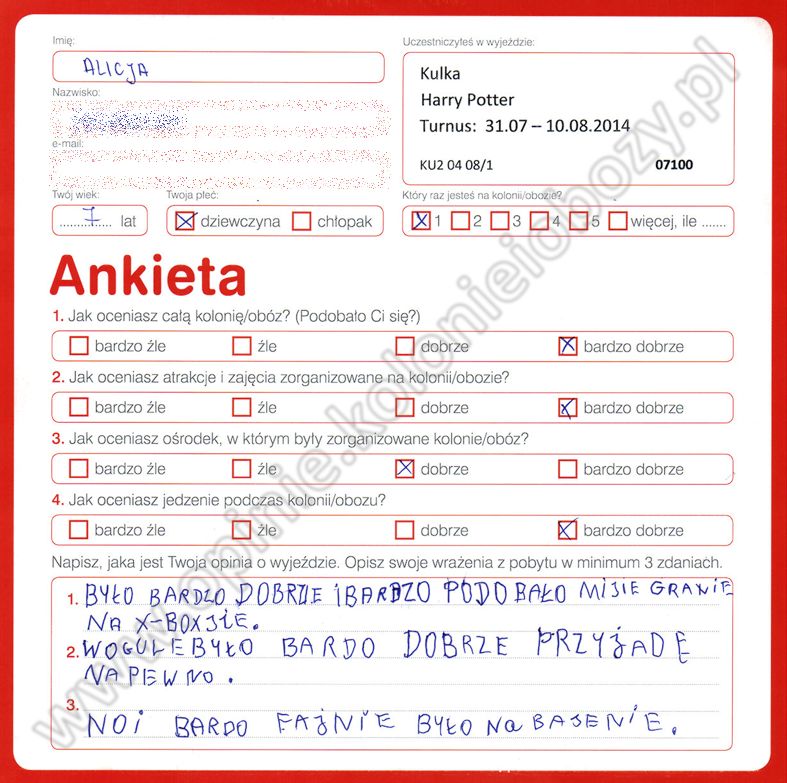 Imię:
ALICJA
Nazwisko:
e-mail:
Twój wiek:
7 lat
Twoja płeć:
dziewczyna chłopak
Uczestniczyłeś w wyjeździe:
Kulka
Harry Potter
Turnus: 31.07 – 10.08.2014
KU2 04 08/1 07100
Który raz jesteś na kolonii/obozie?
1 2 3 4 5 więcej, ile .......
Ankieta
1. Jak oceniasz całą kolonię/obóz? (Podobało Ci się?)
bardzo źle źle dobrze bardzo dobrze
2. Jak oceniasz atrakcje i zajęcia zorganizowane na kolonii/obozie?
bardzo źle źle dobrze bardzo dobrze
3. Jak oceniasz ośrodek, w którym były zorganizowane kolonie/obóz?
bardzo źle źle dobrze bardzo dobrze
4. Jak oceniasz jedzenie podczas kolonii/obozu?
bardzo źle źle dobrze bardzo dobrze
Napisz, jaka jest Twoja opinia o wyjeździe. Opisz swoje wrażenia z pobytu w minimum 3 zdaniach.
1. BYŁO BARDZO DOBRZE I BARDZO PODOBAŁO MISIE GRANIE
NA X-BOXSIE.
2. WOGULE BYŁO BARDO DOBRZE PRZYJADĘ
NA PEWNO.
3.
NOI BARDO FAJNIE BYŁO Na BASENIE.
www.opinie.kolonieiobozy.pl